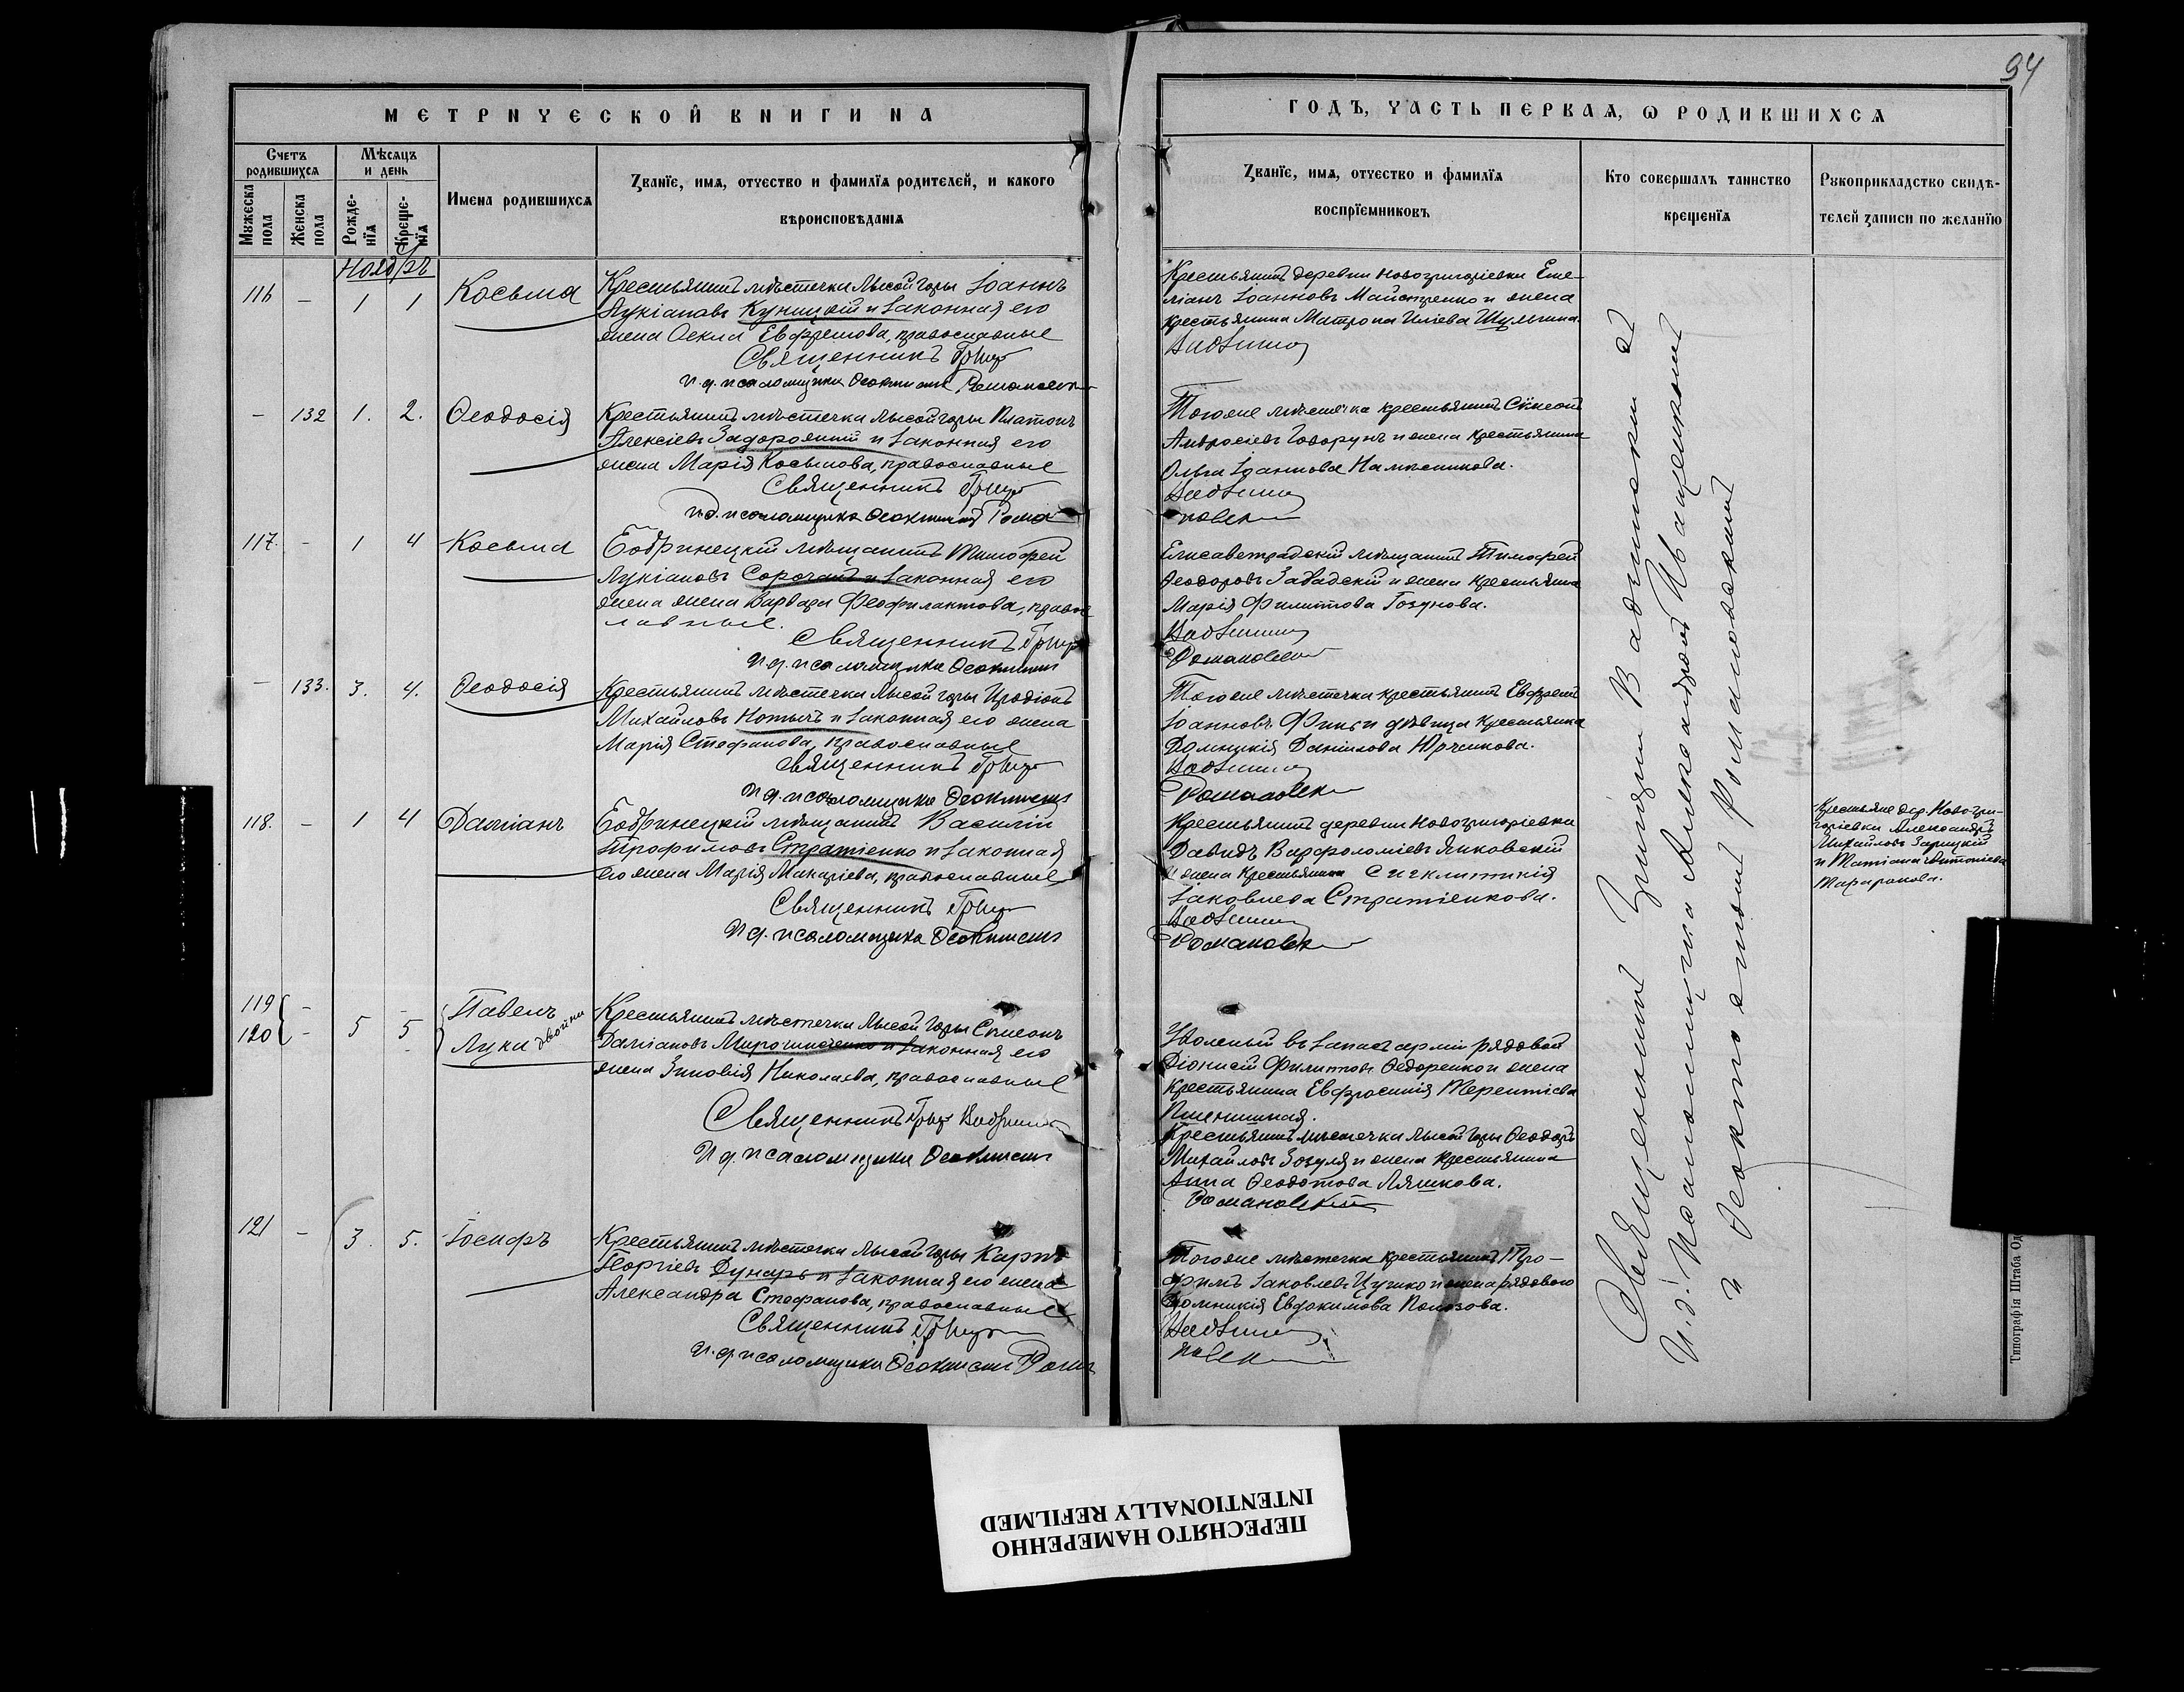 94
МЕТРИЧЕСКОЙ КНИГИ НА
ГОДЪ, ЧАСТЬ ПЕРВАЯ, Ѡ РОДИВШИХСЯ
Счетъ родившихся
Мѣсяцъ и день
Имена родившихся
Званїе, имя, отчество и фамилїя родителей, и какого
вѣроисповѣданія
Мужеска пола
Женска пола
Рожде-нїя
Креще-нїя
Званїе, имя, отчество и фамилїя
воспрїемниковъ
Кто совершалъ таинство
крещенїя
Рукоприкладство свидѣ-
телей записи по желанїю
Ноябрь
116 – 1 1 Косьма
Крестьянинъ мѣстечка Лысой Горы Іоаннъ
Лукіановъ Куницкій и законная его
жена Ѳекла Евфремова, православные
Священникъ Григ
И. д. псаломщика Ѳеоктистъ Романовск
Крестьянинъ деревни Новогригоріевки Еме-
ліанъ Іоанновъ Майстренко и жена
крестьянина Матрона Иліева Шульгина.
– 132 1. 2. Ѳеодосія
Крестьянинъ мѣстечка Лысой Горы Платонъ
Алексіевъ Задорожній и законная его
жена Марія Косьмова, православные
Священникъ Григ
И. д. псаломщика Ѳеоктистъ Рома
Тогоже мѣстечка крестьянинъ Сѵмеонъ
Амвросіевъ Говорунъ и жена крестьянина
Ольга Іоаннова
новск
117. – 1 4 Косьма
Бобринецкій мѣщанинъ Тимофей
Лукіановъ Сорочанъ и законная его
жена жена Варвара Феофилактова, правос
лавные.
Священникъ Григ
И. д. псаломщика Ѳеоктистъ
Елисаветградскій мѣщанинъ Тимофей
Ѳеодоровъ Завадскій и жена крестьянина
Марія Филиппова
Романовск
– 133. 3. 4. Ѳеодосія
Крестьянинъ мѣстечка Лысой Горы Иродіонъ
Михайловъ и законная его жена
Марія Стефанова, православные
Священникъ Григ
И. д. псаломщика Ѳеоктистъ
Тогоже мѣстечка крестьянинъ Евфремъ
Іоанновъ и дѣвица крестьянка
Домникія Даніилова Юрчикова.
Романовск
118. – 1 4 Даміанъ
Бобринецкій мѣщанинъ Василій
Трофимовъ Стратіенко и законная
его жена Марія Макаріева, православные
Священникъ Григ
И. д. псаломщика Ѳеоктистъ
Крестьянинъ деревни Новогригоріевки
Давидъ Варфоломіевъ Янковскій
и жена крестьянина Сигклитикія
Іаковлева Стратіенкова.
Романовск
Крестьяне дер. Новогри-
горіевки Александръ
Михайловъ Зарицкій
и Татіана Антоніева
119 – Павелъ
120 – 5 5 Лука двойни
Крестьянинъ мѣстечка Лысой Горы Симеонъ
Даміановъ Мирошниченко и законная его
жена Зиновія Николаева, православные
Священникъ Григ
И. д. псаломщика Ѳеоктистъ
Уволеный въ запасъ арміи рядовой
Діонисій Филипповъ Ѳедоренко и жена
крестьянина Евфросинія Терентіева
Пшеничная.
Крестьянинъ мѣстечка Лысой Горы Ѳеодоръ
Михайловъ Зозуля и жена крестьянина
Анна Ѳеодотова Ляшкова.
Романовскій
121 – 3. 5. Іосифъ
Крестьянинъ мѣстечка Лысой Горы Карпъ
Георгіевъ и законная его жена
Александра Стефанова, православные
Священникъ Григ
И. д. псаломщика Ѳеоктистъ Рома
Тогоже мѣстечка крестьянинъ Тро-
фимъ Іаковлевъ и жена рядового
Домникія Евдокимова Полозова.
новск
Священникъ Григорій съ
и. д. псаломщика Александромъ Иващенкомъ
и Ѳеоктистомъ Романовскимъ
Типографія Штаба Од
ПЕРЕСНЯТО НАМЕРЕННО
INTENTIONALLY REFILMED